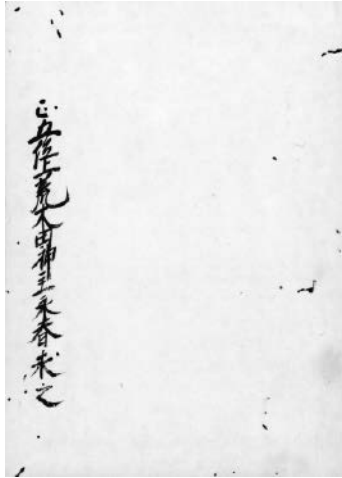 正五位上荒木田神主永春求之